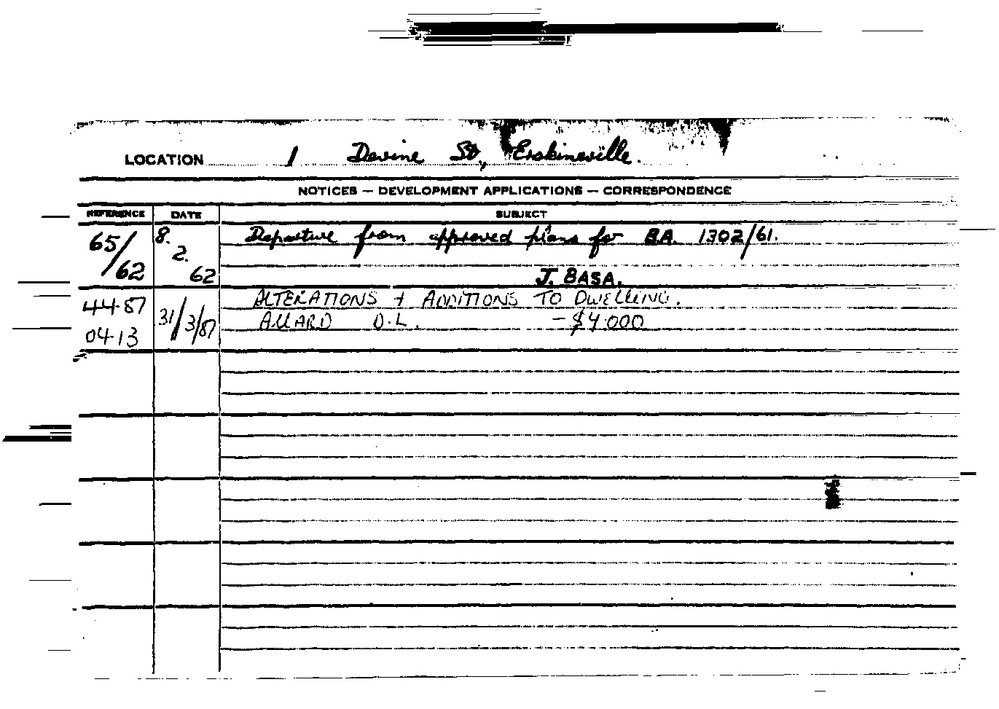 LOCATION 1 Devine St, Erskineville.
NOTICES — DEVELOPMENT APPLICATIONS — CORRESPONDENCE
REFERENCE DATE SUBJECT
65/62 8.2.62 Departure from approved plans for B.A. 1302/61.
J. BASA.
44-87 31/3/87 ALTERATIONS + ADDITIONS TO DWELLING.
04-13 ALLARD D.L. - $4 000